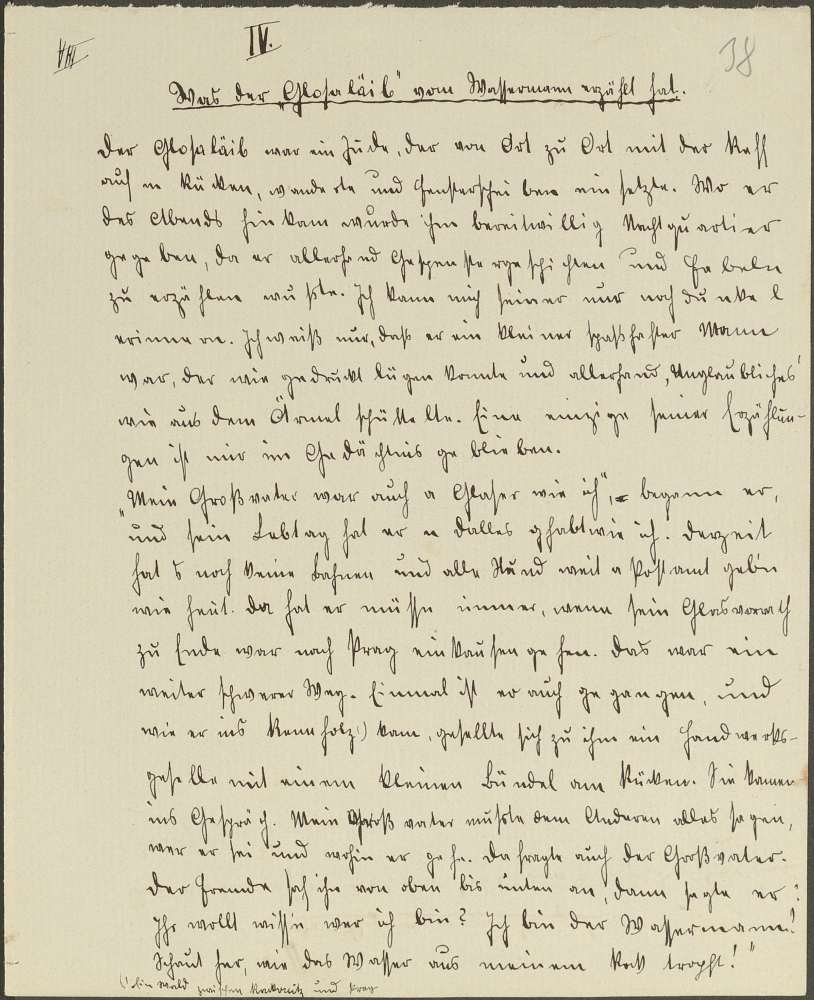 VIII
IV.
38
Was der „Glosaläib" vom Wassermann erzählt hat.
Der Glosaläib war ein Jude, der von Ort zu Ort mit der Reff
auf n Rücken, wanderte und Fensterscheiben einsetzte. Wo er
des Abends hinkam wurde ihm bereitwillig Nachtquartier
gegeben, da er allerhand Gespenstergeschichten und Fabeln
zu erzählen wußte. Ich kann mich seiner nur noch dunkel
erinnern. Ich weiß nur, daß er ein kleiner spaßhafter Mann
war, der wie gedruckt lügen konnte und allerhand „Unglaubliches"
wie aus dem Ärmel schüttelte. Eine einzige seiner Erzählun-
gen ist mir im Gedächtnis geblieben.
„Mein Großvater war auch a Glaser wie ich", – begann er,
und sein Lebtag hat er n Dalles ghabt wie ich. Derzeit
hat's noch keine Bahnen und alle Stund weit a Postamt geb'n
wie heut. Da hat er müssn immer, wenn sein Glasvorrath
zu Ende war nach Prag einkaufen gehen. Das war ein
weiter schwerer Weg. Einmal ist er auch gegangen, und
wie er ins Rennholz ¹) kam, gesellte sich zu ihm ein Handwerks-
geselle mit einem kleinen Bündel am Rücken. Sie kamen
ins Gespräch. Mein Großvater mußte dem Anderen alles sagen,
wer er sei und wohin er gehe. Da fragte auch der Großvater.
Der Fremde sah ihn von oben bis unten an, dann sagte er:
Ihr wollt wissn wer ich bin? Ich bin der Wassermann!
Schaut her, wie das Wasser aus meinem Rock tropft!"
(¹ Ein Wald zwischen Rakonitz und Prag